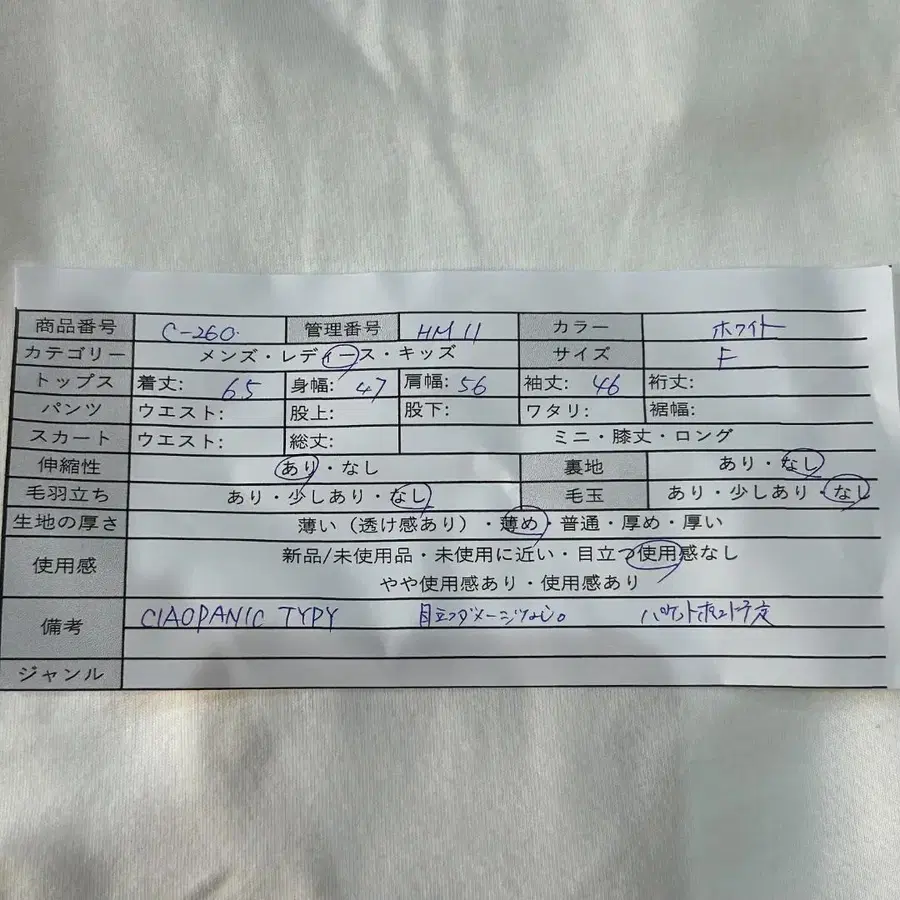 商品番号 C-260 管理番号 HM 11 カラー ホワイト
カテゴリー メンズ・レディース・キッズ サイズ F
トップス 着丈: 65 身幅: 47 肩幅: 56 袖丈: 46 裄丈:
パンツ ウエスト: 股上: 股下: ワタリ: 裾幅:
スカート ウエスト: 総丈: ミニ・膝丈・ロング
伸縮性 あり・なし 裏地 あり・なし
毛羽立ち あり・少しあり・なし 毛玉 あり・少しあり・なし
生地の厚さ 薄い（透け感あり）・薄め・普通・厚め・厚い
使用感 新品/未使用品・未使用に近い・目立つ使用感なし
やや使用感あり・使用感あり
備考 CIAOPANIC TYPY 目立つダメージなし。
ジャンル